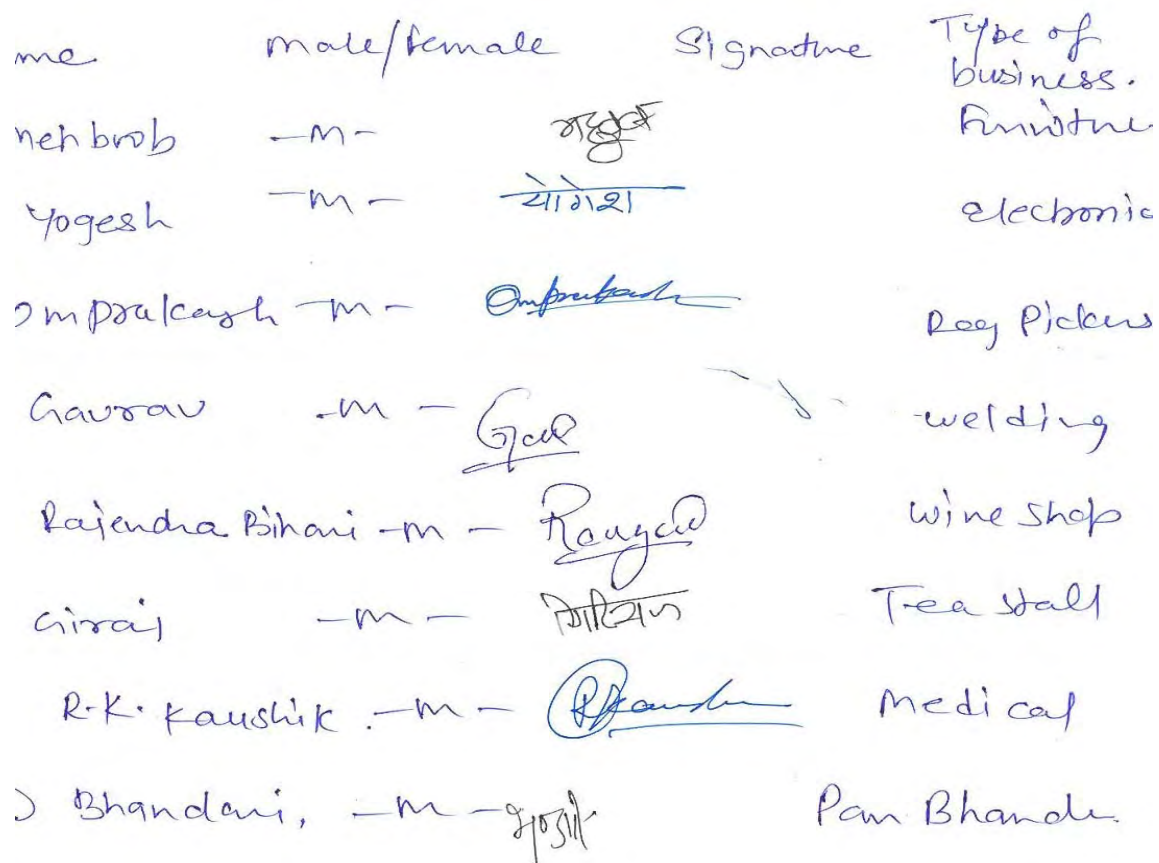 me male/Female Signature Type of
business.
mehbrob -M- महबूब Furniture
Yogesh -M- योगेश electronic
Omprakash -M- Omprakash Rag Pickers
Gaurav -M-  welding
Rajendra Bihari -M- wine shop
Giraj -M- Tea stall
R.K. Kaushik. -M- Medical
Bhandari, -M- Pan Bhande